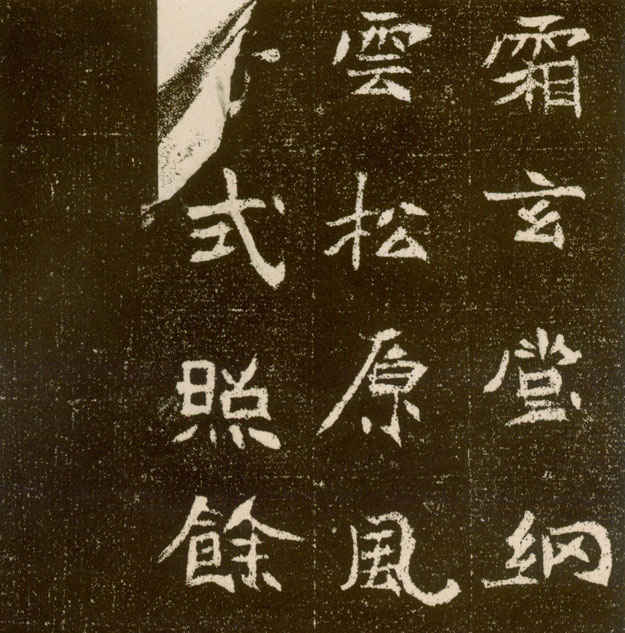 霜玄堂網
雲松原風
式照餘